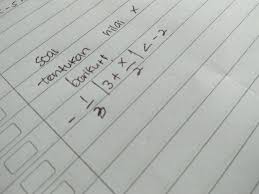 Soal
tentukan nilai x
berikut!
- 1/3 |3 + x/2| < -2